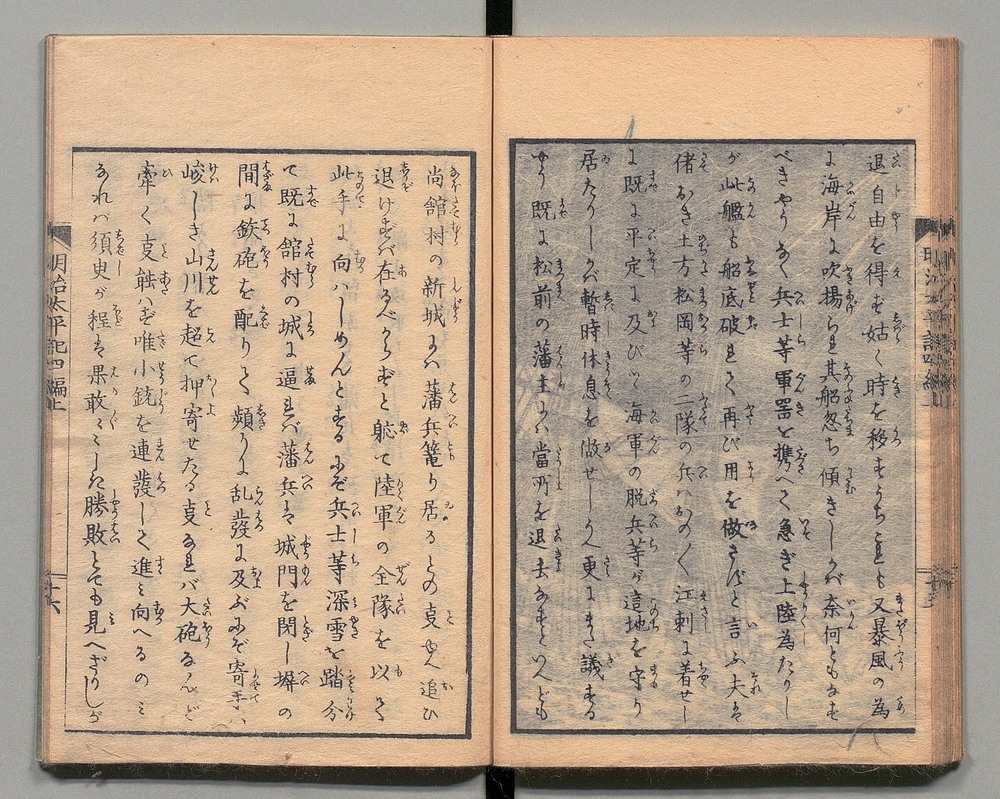 退自由を得ず姑く時を移すうちこれも又暴風の為
に海岸に吹揚られ其船忽ち傾きしかバ奈何ともなす
べきやうなく兵士等軍器を携へて急ぎ上陸為たりし
が此艦も船底破れて再び用を做さずと言ふ夫は
偖おき土方松岡等の二隊の兵ハおのく江刺に着せし
に既に平定に及びて海軍の脱兵等が這地を守り
居たりしかバ暫時休息を做せしが更にまた議する
やう既に松前の藩主にハ當所を退去なすといへども
尚舘村の新城にハ藩兵篭り居るとの㕝ゆゑ追ひ
退けずバ在べからずと躰て陸軍の全隊を以て
此手に向ハしめんとするにぞ兵士等深雪を踏分
て既に舘村の城に逼れバ藩兵は城門を閉し塀の
間に鉄砲を配りて頻りに乱發に及ぶにぞ寄手ハ
峻しき山川を超て押寄せたる㕝なれバ大砲なんど
牽く㕝能ハず唯小銃を連發して進み向へるのミ
なれバ須臾が程は果敢々々しき勝敗とても見へざりしが
明治太平記四編上